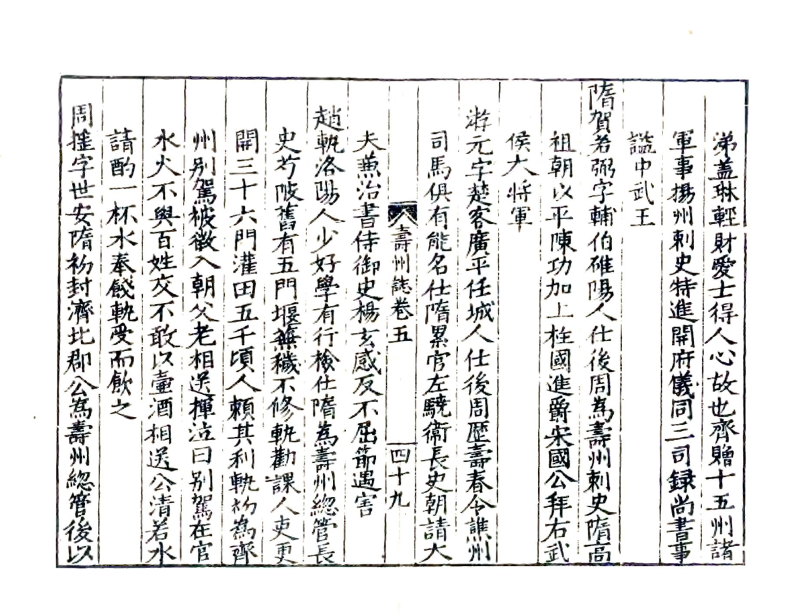 涕蓋琳輕財愛士得人心故也齊贈十五州諸
軍事揚州刺史特進開府儀同三司録尚書事
謚忠武王
隋賀若弼字輔伯雒陽人仕後周為壽州刺史隋高
祖朝以平陳功加上柱國進爵宋國公拜右武
侯大將軍
游元字楚客廣平任城人仕後周歷壽春令譙州
司馬俱有能名仕隋累官左驍衛長史朝請大
壽州誌卷五
四十九
夫兼治書侍御史楊玄感反不屈節遇害
趙軌洛陽人少好學有行檢仕隋為壽州總管長
史芍陂舊有五門堰蕪穢不修軌勸課人吏更
開三十六門灌田五千頃人賴其利軌初為齊
州别駕被徵入朝父老相送揮泣曰别駕在官
水火不與百姓交不敢以壷酒相送公清若水
請酌一杯水奉餞軌受而飲之
周揺字世安隋初封濟北郡公為壽州總管後以